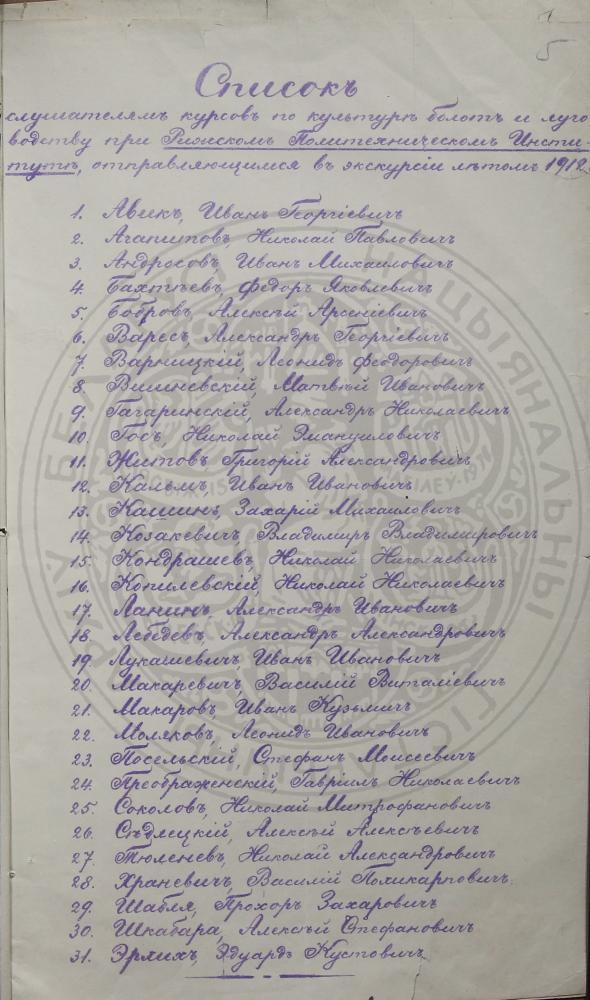 1
5
Списокъ
слушателямъ курсовъ по культурѣ болотъ и луго
водству при Рижскомъ Политехническомъ Инсти-
тутѣ, отправляющимся въ экскурсіи лѣтомъ 1912
1. Авикъ, Иванъ Георгіевичъ
2. Агапитовъ, Николай Павловичъ
3. Андросовъ, Иванъ Михаиловичъ
4. Бахтѣевъ, Федоръ Яковлевичъ
5. Бобровъ, Алексѣй Арсеніевичъ
6. Варесъ, Александръ Георгіевичъ
7. Варницкій, Леонидъ Феодоровичъ
8. Вишневскій, Матвѣй Ивановичъ
9. Гагаринскій, Александръ Николаевичъ
10. Госъ, Николай Эмануиловичъ
11. Житовъ Григорій Александровичъ
12. Кальмъ, Иванъ Ивановичъ
13. Кашинъ, Захарій Михаиловичъ
14. Козакевичъ, Владимиръ Владимировичъ
15. Кондрашевъ, Николай Николаевичъ
16. Копилевскій, Николай Николаевичъ
17. Ланинъ, Александръ Ивановичъ
18. Лебедевъ, Александръ Александровичъ
19. Лукашевичъ, Иванъ Ивановичъ
20. Макаревичъ, Василій Виталіевичъ
21. Макаровъ, Иванъ Кузьмичъ
22. Моляковъ, Леонидъ Ивановичъ
23. Посельскій, Стефанъ Моисеевичъ
24. Преображенскій, Гавріилъ Николаевичъ
25. Соколовъ, Николай Митрофановичъ
26. Сѣдлецкій, Алексѣй Алексѣевичъ
27. Тюленевъ, Николай Александровичъ
28. Храневичъ, Василій Поликарповичъ.
29. Шабля, Прохоръ Захаровичъ
30. Шкабара, Алексѣй Стефановичъ
31. Эрлихъ, Эдуардъ Кустовичъ